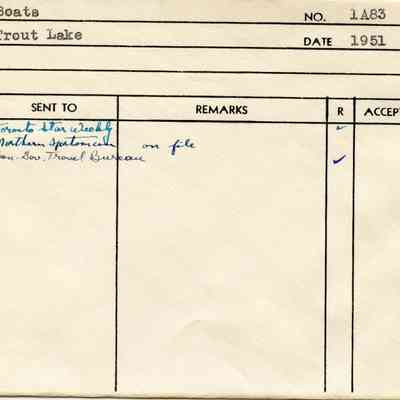 Boats NO. 1A83
Trout Lake DATE 1951
SENT TO REMARKS R ACCEP
oronto Star Weekly
Northern Sportsman on file
an. Gov. Travel Bureau